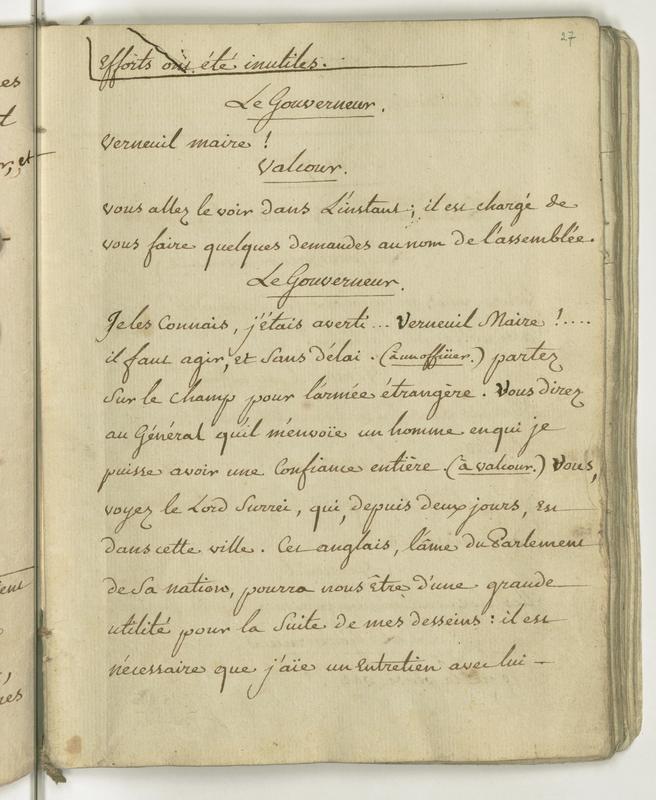 27
Efforts ont été inutiles.
Le Gouverneur.
Verneuil maire !
Valcour.
vous allez le voir dans L'instant ; il est chargé de
vous faire quelques demandes au nom de l'assemblée.
Le Gouverneur.
Je les Connais, j'étais averti ... Verneuil Maire !....
il faut agir, et Sans délai . (à un officier.) partez
Sur le champ pour l'armée étrangère . Vous direz
au Général qu'il m'envoie un homme en qui je
puisse avoir une Confiance entière . (à valcour.) Vous,
voyez le Lord Surrei, qui, depuis deux jours, Est
dans cette ville . Cet anglais, l'âme du Parlement
de Sa nation, pourra nous Être d'une grande
utilité pour la Suite de mes desseins : il est
nécessaire que j'aïe un Entretien avec lui —